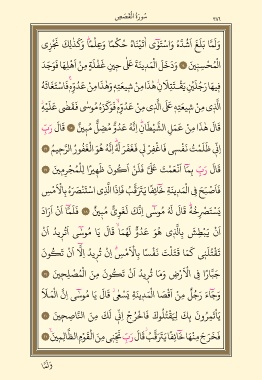 سُورَةُ الْقَصَصِ ٣٨٦
وَلَمَّا بَلَغَ اَشُدَّهُ وَاسْتَوٰٓى اٰتَيْنَاهُ حُكْمًا وَعِلْمًاۜ وَكَذٰلِكَ نَجْزِى
الْمُحْسِنٖينَ ﴿١٤﴾ وَدَخَلَ الْمَدٖينَةَ عَلٰى حٖينِ غَفْلَةٍ مِنْ اَهْلِهَا فَوَجَدَ
فٖيهَا رَجُلَيْنِ يَقْتَتِلَانِۘ هٰذَا مِنْ شٖيعَتِهٖ وَهٰذَا مِنْ عَدُوِّهٖۚ فَاسْتَغَاثَهُ
الَّذٖى مِنْ شٖيعَتِهٖ عَلَى الَّذٖى مِنْ عَدُوِّهٖۙ فَوَكَزَهُ مُوسٰى فَقَضٰى عَلَيْهِۘ
قَالَ هٰذَا مِنْ عَمَلِ الشَّيْطَانِۜ اِنَّهُ عَدُوٌّ مُضِلٌّ مُبٖينٌ ﴿١٥﴾ قَالَ رَبِّ
اِنّٖى ظَلَمْتُ نَفْسٖى فَاغْفِرْ لٖى فَغَفَرَ لَهُۜ اِنَّهُ هُوَ الْغَفُورُ الرَّحٖيمُ ﴿١٦﴾
قَالَ رَبِّ بِمَٓا اَنْعَمْتَ عَلَیَّ فَلَنْ اَكُونَ ظَهٖيرًا لِلْمُجْرِمٖينَ ﴿١٧﴾
فَاَصْبَحَ فِى الْمَدٖينَةِ خَٓائِفًا يَتَرَقَّبُ فَاِذَا الَّذِى اسْتَنْصَرَهُ بِالْاَمْسِ
يَسْتَصْرِخُهُۜ قَالَ لَهُ مُوسٰٓى اِنَّكَ لَغَوِىٌّ مُبٖينٌ ﴿١٨﴾ فَلَمَّٓا اَنْ اَرَادَ
اَنْ يَبْطِشَ بِالَّذٖى هُوَ عَدُوٌّ لَهُمَاۙ قَالَ يَا مُوسٰٓى اَتُرٖيدُ اَنْ
تَقْتُلَنٖى كَمَا قَتَلْتَ نَفْسًا بِالْاَمْسِۗ اِنْ تُرٖيدُ اِلَّٓا اَنْ تَكُونَ
جَبَّارًا فِى الْاَرْضِ وَمَا تُرٖيدُ اَنْ تَكُونَ مِنَ الْمُصْلِحٖينَ ﴿١٩﴾
وَجَٓاءَ رَجُلٌ مِنْ اَقْصَا الْمَدٖينَةِ يَسْعٰىۘ قَالَ يَا مُوسٰٓى اِنَّ الْمَلَاَ
يَأْتَمِرُونَ بِكَ لِيَقْتُلُوكَ فَاخْرُجْ اِنّٖى لَكَ مِنَ النَّاصِحٖينَ ﴿٢٠﴾
فَخَرَجَ مِنْهَا خَٓائِفًا يَتَرَقَّبُۘ قَالَ رَبِّ نَجِّنٖى مِنَ الْقَوْمِ الظَّالِمٖينَ ﴿٢١﴾
وَلَمَّا